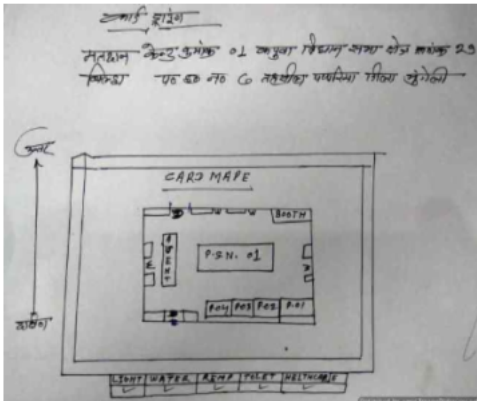 कार्ड ड्राइंग
मतदान केन्द्र क्रमांक 01 विधान सभा क्षेत्र क्रमांक 29
प०ह०न० 6 तहसील पथरिया जिला मुंगेली
उत्तर
CARD MAPE
BOOTH
AGENT
P.S.N. 01
W
W
P.04 P.03 P.02 P.01
दक्षिण
LIGHT WATER REMP TOILET HELTHCARE